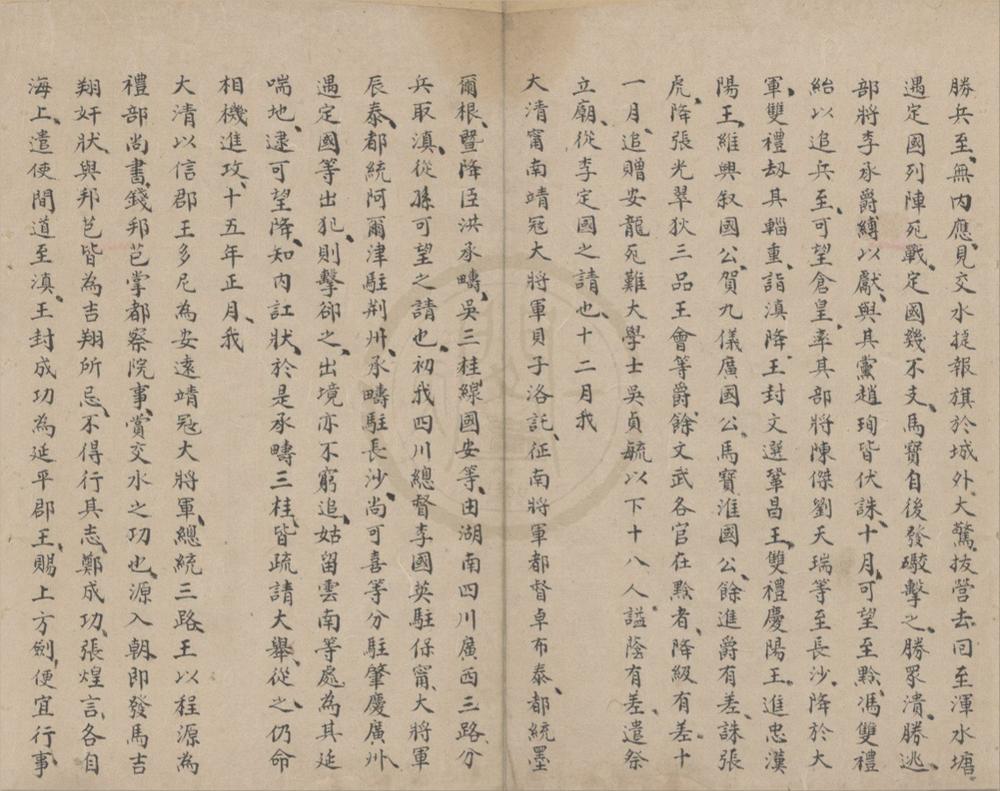 勝兵至、無内應、見交水捷報旗於城外大驚、拔營去、回至渾水塘
遇定國列陣宛戰、定國幾不支、馬寶自後發礮擊之、勝眾潰、勝逃、
部將李承爵縛以獻、與其黨趙珣皆伏誅、十月、可望至黔、馮雙禮
紿以追兵至、可望倉皇率其部將陳傑劉天瑞等至長沙、降於大
軍、雙禮刼其輜重、詣滇降、王封文選鞏昌王、雙禮慶陽王、進忠漢
陽王、維興叙國公、賀九儀廣國公、馬寶淮國公、餘進爵有差、誅張
虎、降張光翠狄三品王會等爵、餘文武各官在黔者、降級有差、十
一月、追贈安龍宛難大學士吳貞毓以下十八人謚蔭有差、遣祭
立廟、從李定國之請也、十二月我
大清甯南靖冦大將軍貝子洛託、征南將軍都督卓布泰、都統墨
爾根、暨降臣洪承疇、吳三桂、線國安等、由湖南四川廣西三路分
兵取滇、從孫可望之請也、初我四川總督李國英駐保甯、大將軍
辰泰、都統阿爾津駐荆州、承疇駐長沙、尚可喜等分駐肇慶廣州、
遇定國等出犯、則擊卻之、出境亦不窮追、姑留雲南等處為其延
喘地、逮可望降、知内訌狀、於是承疇三桂皆疏請大舉、從之、仍命
相機進攻、十五年正月、我
大清以信郡王多尼為安遠靖冦大將軍、總統三路、王以程源為
禮部尚書、錢邦芑掌都察院事、賞交水之功也、源入朝、即發馬吉
翔奸狀、與邦芑皆為吉翔所忌、不得行其志、鄭成功、張煌言、各自
海上、遣使間道至滇、王封成功為延平郡王、賜上方劍、便宜行事、